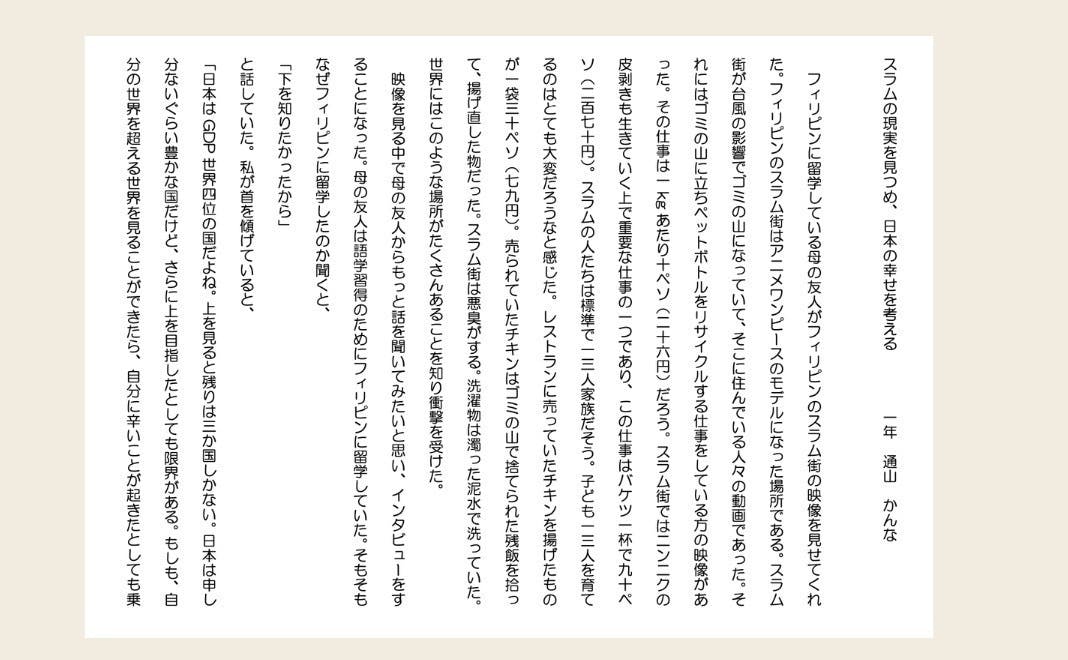 スラムの現実を見つめ、日本の幸せを考える　　　一年　通山　かんな
フィリピンに留学している母の友人がフィリピンのスラム街の映像を見せてくれ
た。フィリピンのスラム街はアニメワンピースのモデルになった場所である。スラム
街が台風の影響でゴミの山になっていて、そこに住んでいる人々の動画であった。そ
れにはゴミの山に立ちペットボトルをリサイクルする仕事をしている方の映像があ
った。その仕事は一 kg あたり十ペソ（二十六円）だろう。スラム街ではニンニクの
皮剥きも生きていく上で重要な仕事の一つであり、この仕事はバケツ一杯で九十ペ
ソ（二百七十円）。スラムの人たちは標準で一三人家族だそう。子ども一三人を育て
るのはとても大変だろうなと感じた。レストランに売っていたチキンを揚げたもの
が一袋三十ペソ（七九円）。売られていたチキンはゴミの山で捨てられた残飯を拾っ
て、揚げ直した物だった。スラム街は悪臭がする。洗濯物は濁った泥水で洗っていた。
世界にはこのような場所がたくさんあることを知り衝撃を受けた。
映像を見る中で母の友人からもっと話を聞いてみたいと思い、インタビューをす
ることになった。母の友人は語学習得のためにフィリピンに留学していた。そもそも
なぜフィリピンに留学したのか聞くと、
「下を知りたかったから」
と話していた。私が首を傾げていると、
「日本は GDP 世界四位の国だよね。上を見ると残りは三か国しかない。日本は申し
分ないぐらい豊かな国だけど、さらに上を目指したとしても限界がある。もしも、自
分の世界を超える世界を見ることができたら、自分に辛いことが起きたとしても乗